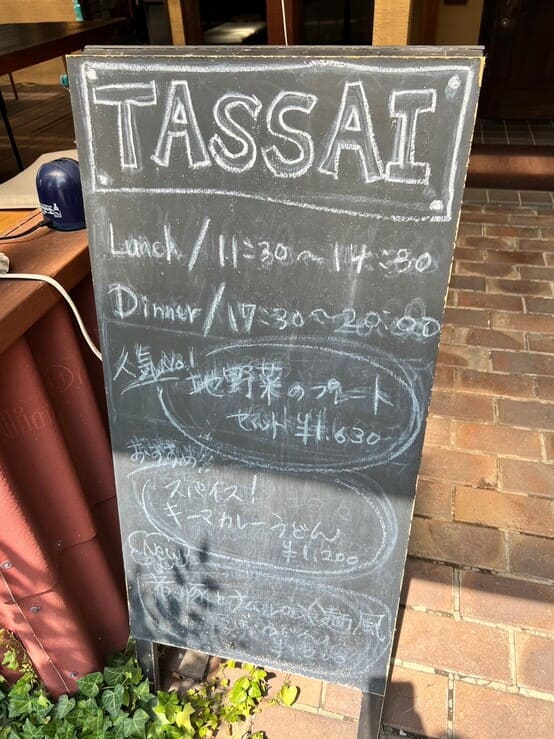 TASSAI
Lunch/11:30～14:30
Dinner/17:30～20:00
人気No!
地野菜のプレート
セット ¥1,630-
おすすめ!!
スパイス!
キーマカレーうどん
¥1,200
New!
冷麺風